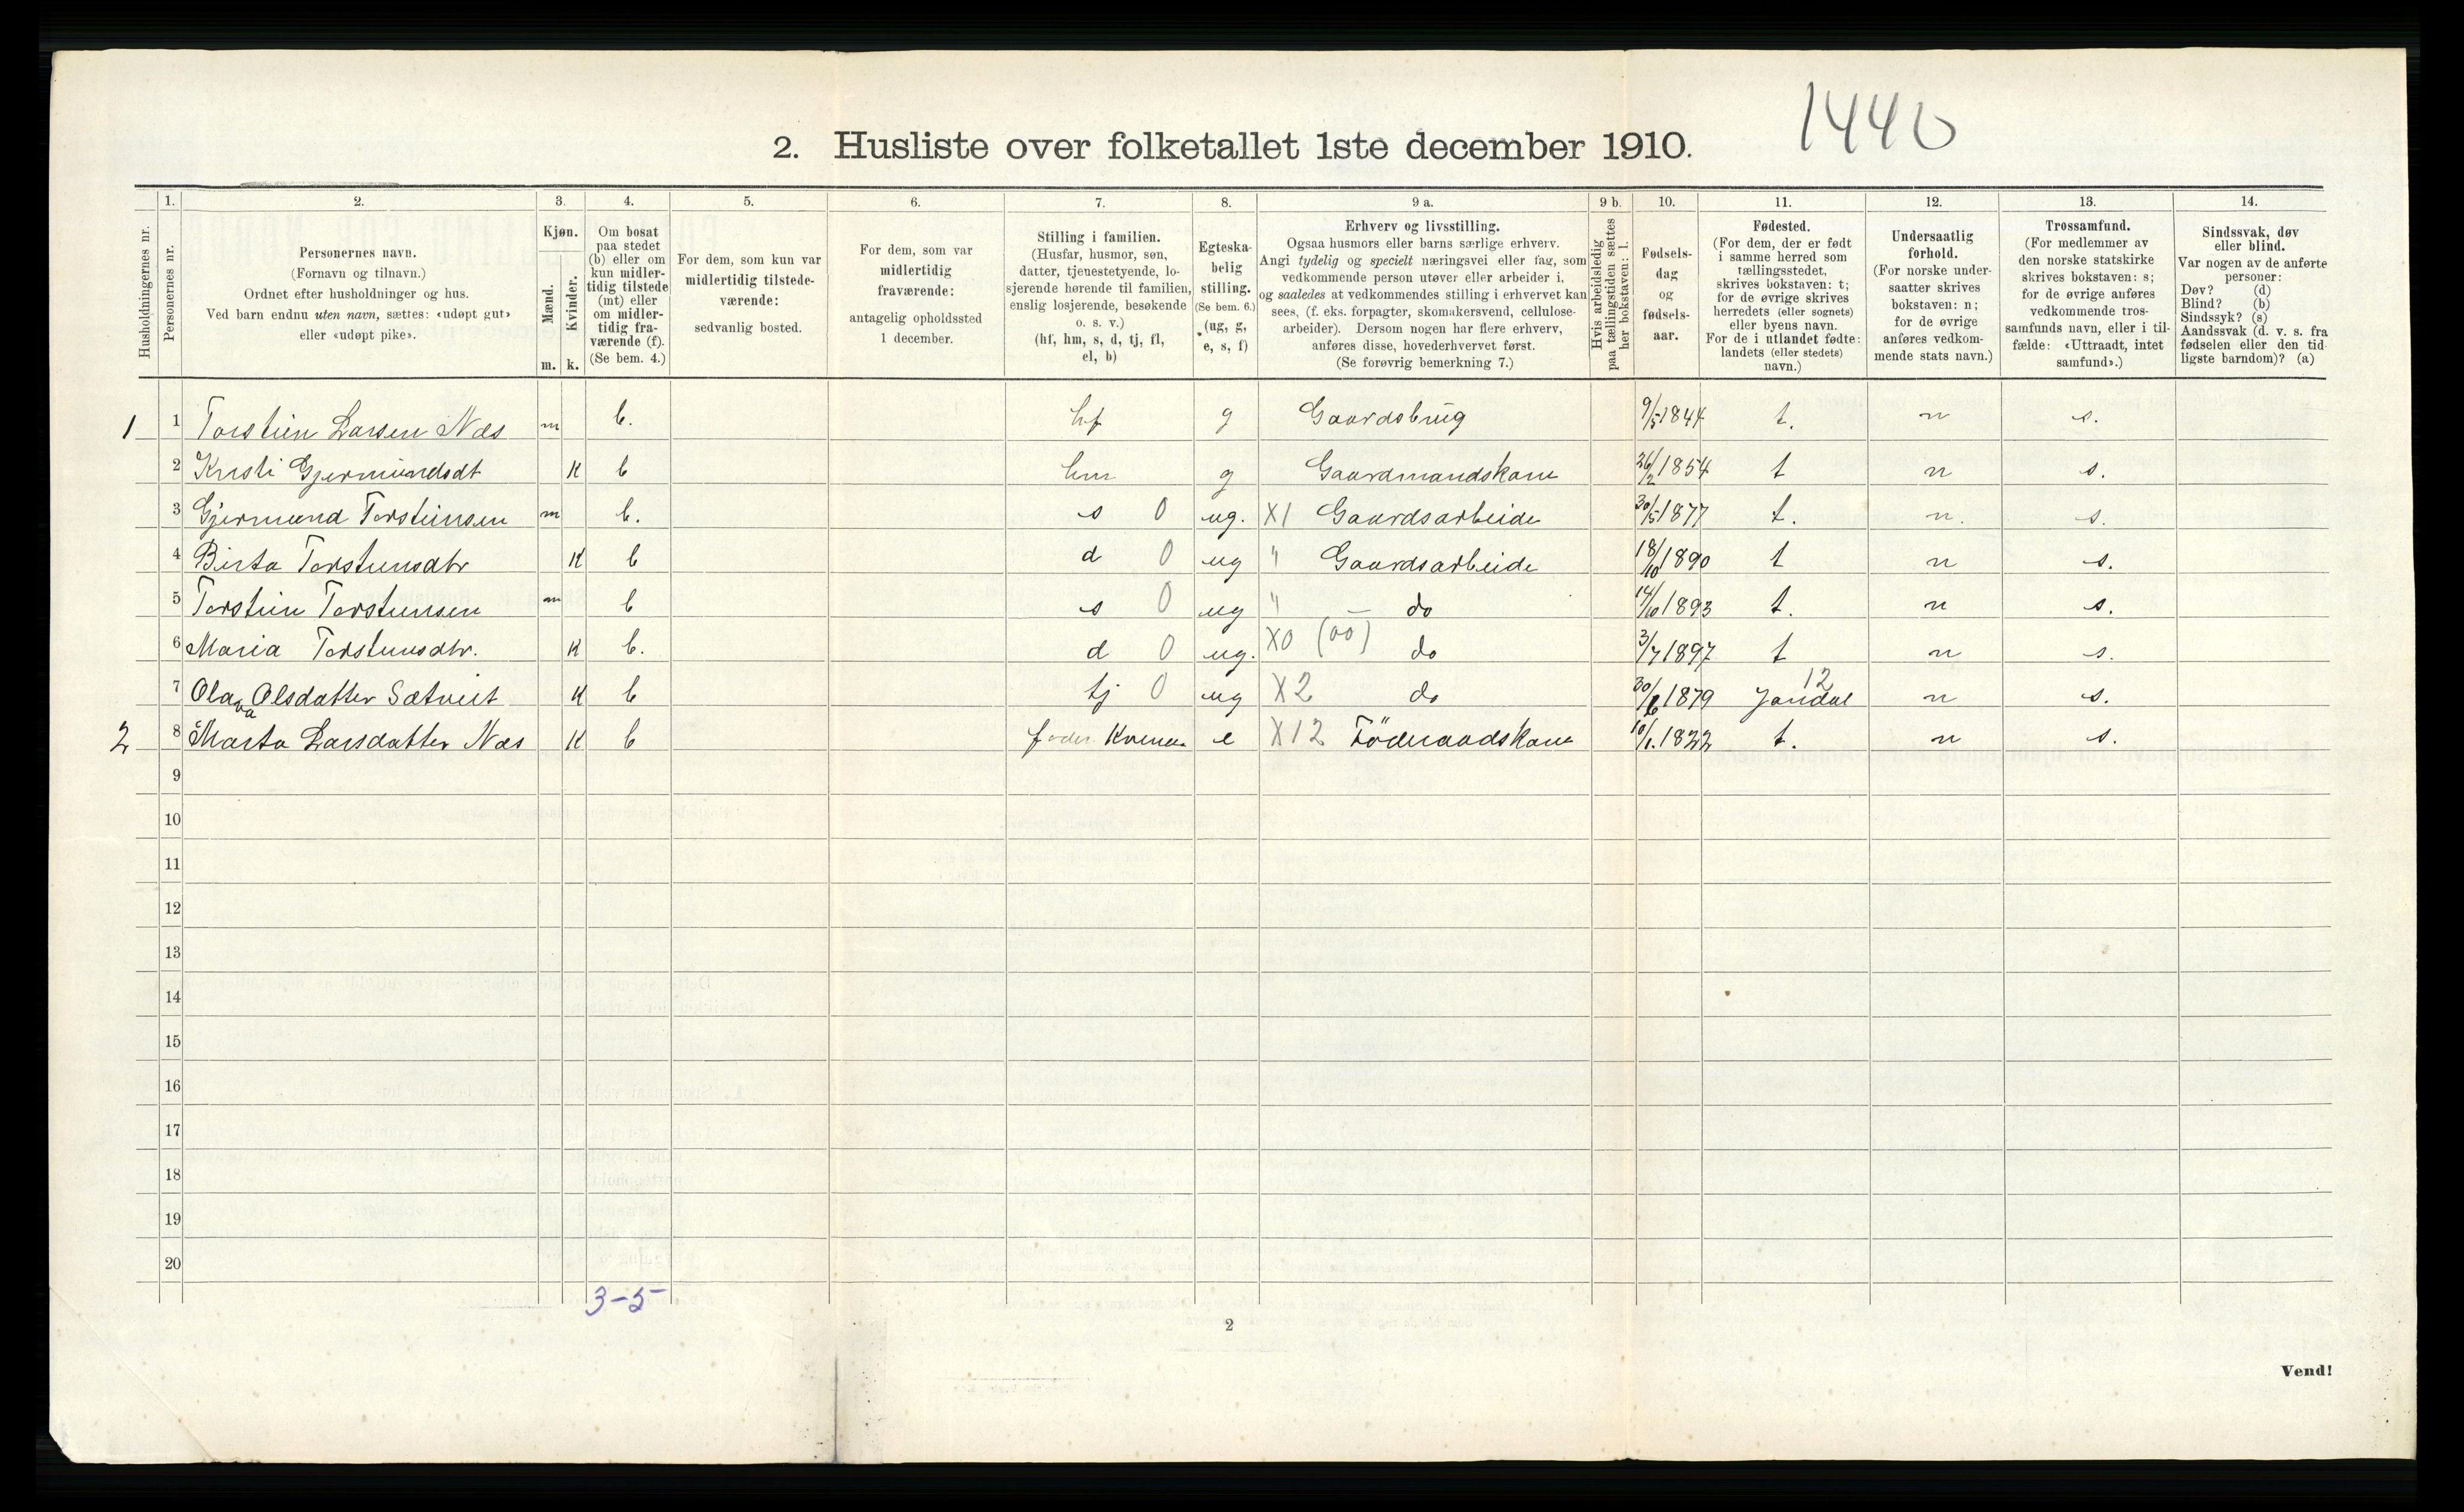 1440
2. Husliste over folketallet 1ste december 1910.
Husholdningernes nr.
1.
Personernes nr.
2.
Personernes navn.
(Fornavn og tilnavn.)
Ordnet efter husholdninger og hus.
Ved barn endnu uten navn, sættes: «udøpt gut»
eller «udøpt pike».
3.
Kjøn.
Mænd.
Kvinder.
m. k.
4.
Om bosat
paa stedet
(b) eller om
kun midler-
tidig tilstede
(mt) eller
om midler-
tidig fra-
værende (f).
(Se bem. 4.)
5.
For dem, som kun var
midlertidig tilstede-
værende:
sedvanlig bosted.
6.
For dem, som var
midlertidig
fraværende:
antagelig opholdssted
1 december.
7.
Stilling i familien.
(Husfar, husmor, søn,
datter, tjenestetyende, lo-
sjerende hørende til familien,
enslig losjerende, besøkende
o. s. v.)
(hf, hm, s, d, tj, fl,
el, b)
8.
Egteska-
belig
stilling.
(Se bem. 6.)
(ug, g,
e, s, f)
9 a.
Erhverv og livsstilling.
Ogsaa husmors eller barns særlige erhverv.
Angi tydelig og specielt næringsvei eller fag, som
vedkommende person utøver eller arbeider i,
og saaledes at vedkommendes stilling i erhvervet kan
sees, (f. eks. forpagter, skomakersvend, cellulose-
arbeider). Dersom nogen har flere erhverv,
anføres disse, hovederhvervet først.
(Se forøvrig bemerkning 7.)
9 b.
Hvis arbeidsledig
paa tællingstiden sættes
her bokstaven: l.
10.
Fødsels-
dag
og
fødsels-
aar.
11.
Fødested.
(For dem, der er født
i samme herred som
tællingsstedet,
skrives bokstaven: t;
for de øvrige skrives
herredets (eller sognets)
eller byens navn.
For de i utlandet fødte:
landets (eller stedets)
navn.)
12.
Undersaatlig
forhold.
(For norske under-
saatter skrives
bokstaven: n;
for de øvrige
anføres vedkom-
mende stats navn.)
13.
Trossamfund.
(For medlemmer av
den norske statskirke
skrives bokstaven: s;
for de øvrige anføres
vedkommende tros-
samfunds navn, eller i til-
fælde: «Uttraadt, intet
samfund».)
14.
Sindssvak, døv
eller blind.
Var nogen av de anførte
personer:
Døv? (d)
Blind? (b)
Sindssyk? (s)
Aandssvak (d. v. s. fra
fødselen eller den tid-
ligste barndom)? (a)
1 1 Torstein Larsen Næs m b. hf g Gaardsbrug 9/5 1844 t. n s.
2 Kristi Gjermundsdt K b hm g Gaardmandskone 26/2 1854 t n s.
3 Gjermund Torsteinsen m b. s 0 ug. X1 Gaardsarbeide 30/5 1877 t. n. s.
4 Birta Torsteinsdtr K b d 0 ug " Gaardsarbeide 18/10 1890 t n s.
5 Torstein Torsteinsen m b s 0 ug " — do 14/10 1893 t. n s.
6 Maria Torsteinsdtr. K b. d 0 ug. X0 (00) do 3/7 1897 t n s.
7 Olava Olsdatter Sætveit K b tj 0 ug X2 do 30/6 1879 Jondal 12 n s.
2 8 Marta Larsdatter Næs K b foder Kvinde e X12 Föderaadskone 10/1. 1822 t. n s.
9
10
11
12
13
14
15
16
17
18
19
20
3-5
2
Vend!